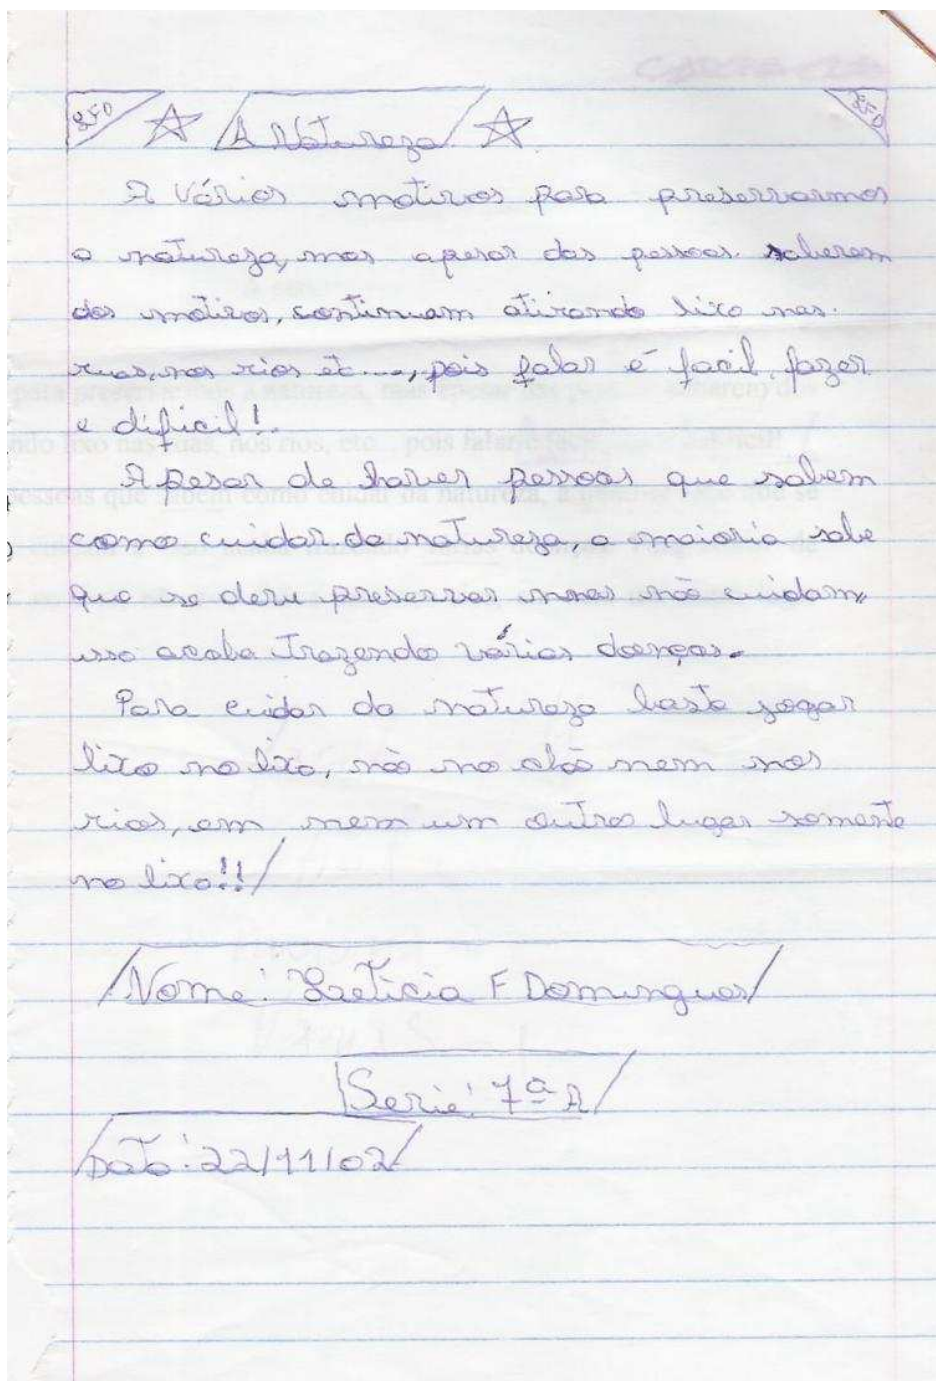 LFD A Natureza LFD
A Vários motivos para preservarmos
a natureza, mas apesar das pessoas. saberem
dos motivos, continuam atirando lixo nas.
ruas, nos rios etc...., pois falar é facil, fazer
e dificil!.
Apesar de haver pessoas que sabem
como cuidar da natureza, a maioria sabe
que se deve preservar mas não cuidam,
isso acaba trazendo várias doenças.
Para cuidar da natureza basta jogar
lixo no lixo, não no chão nem nos
rios, em nem um outro lugar somente
no lixo!!
Nome: Laeticia F Domingues
Serie: 7ª A
Data: 22/11/02